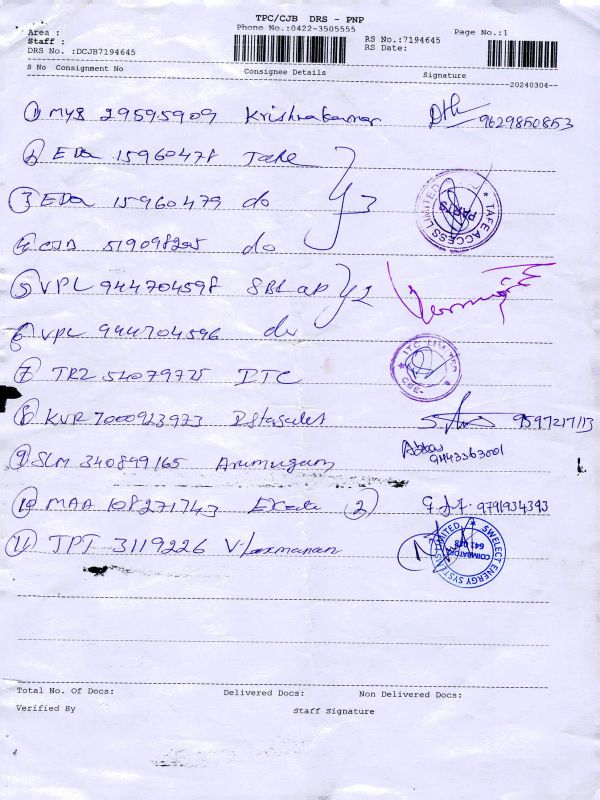 TPC/CJB DRS - PNP
Phone No.:0422-3505555
Area :
Staff :
DRS No. :DCJB7194645
RS No.:7194645
RS Date:
Page No.:1
S No Consignment No Consignee Details Signature
20240304
1 MYS 29595909 Krishnakumar 9629850853
2 EDA 15960478 Tafe
3 EDA 15960479 do 3
TAFE ACCESS LIMITED PARTS
4 CJB 519098205 do
5 VPL 944704598 SBI 2
6 VPL 944704596 do
7 TRZ 54079725 ITC
ITC LIMITED CBE-
8 KVR 7000923973 9597217113
9 SLM 340899165 Arumugam
Abbas
9443363001
10 MAA 108271743 2 9791934393
11 TPT 3119226 V Laxmanan
SWELECT ENERGY SYSTEMS LIMITED COIMBATORE
Total No. Of Docs: Delivered Docs: Non Delivered Docs:
Verified By Staff Signature